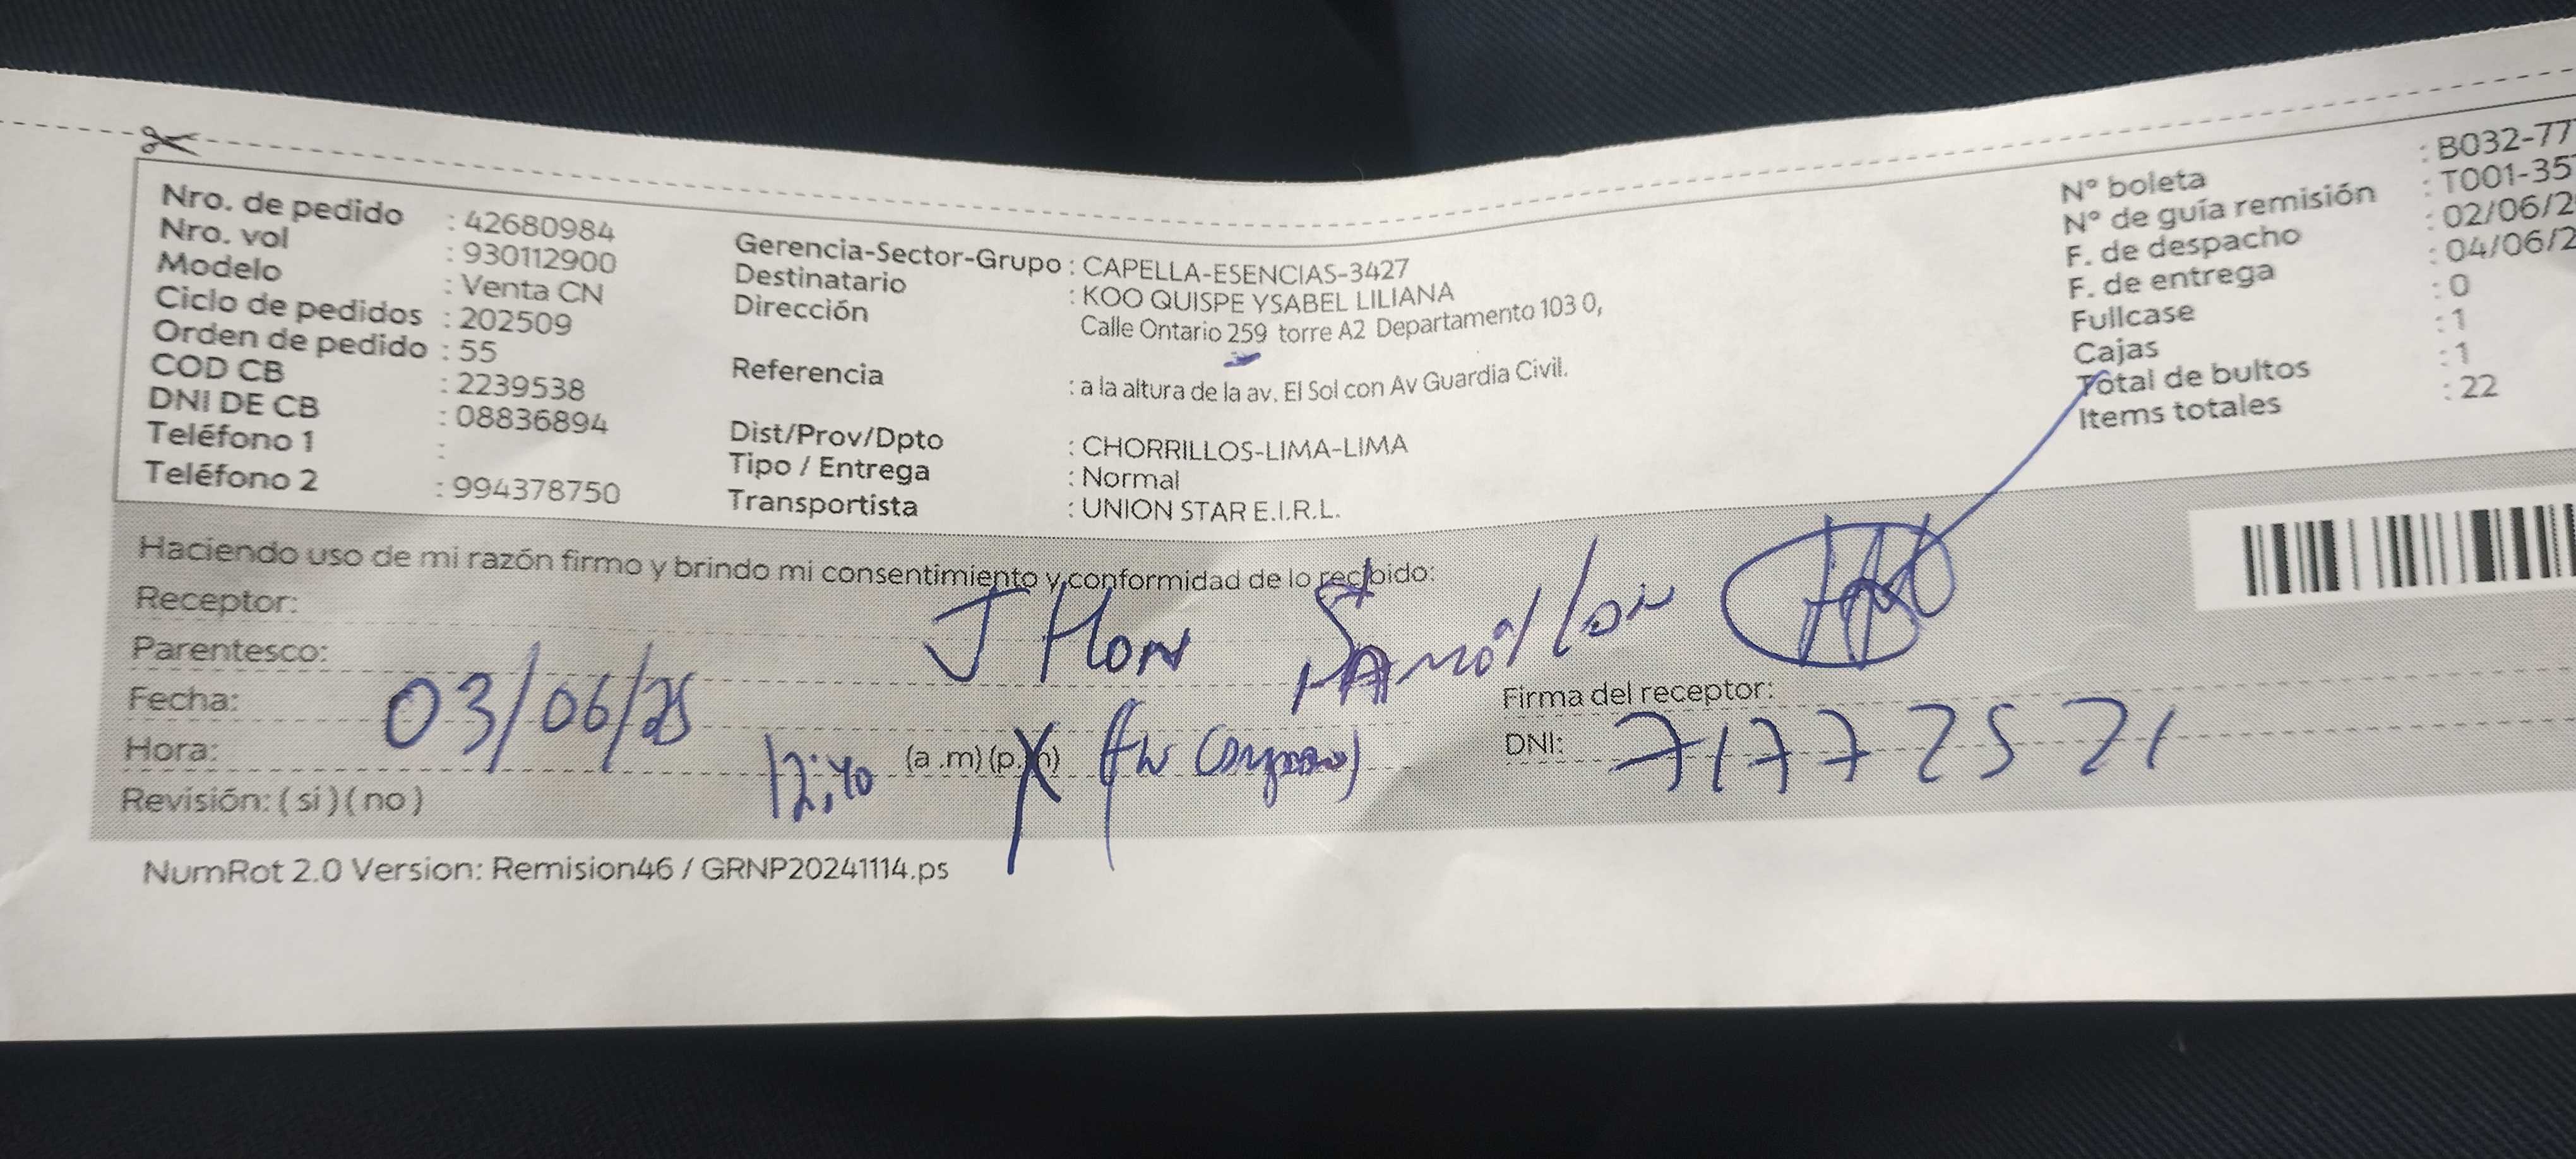 Nro. de pedido : 42680984
Nro. vol : 930112900
Modelo : Venta CN
Ciclo de pedidos : 202509
Orden de pedido : 55
COD CB : 2239538
DNI DE CB : 08836894
Teléfono 1 :
Teléfono 2 : 994378750
Gerencia-Sector-Grupo : CAPELLA-ESENCIAS-3427
Destinatario : KOO QUISPE YSABEL LILIANA
Dirección Calle Ontario 259 torre A2 Departamento 103 0,
Referencia : a la altura de la av. El Sol con Av Guardia Civil.
Dist/Prov/Dpto : CHORRILLOS-LIMA-LIMA
Tipo / Entrega : Normal
Transportista : UNION STAR E.I.R.L.
N° boleta : B032-77
N° de guía remisión : T001-35
F. de despacho : 02/06/2
F. de entrega : 04/06/2
Fullcase : 0
Cajas : 1
Total de bultos : 1
Items totales : 22
Haciendo uso de mi razón firmo y brindo mi consentimiento y conformidad de lo recibido:
Receptor: JHon
Parentesco:
Fecha: 03/06/25
Firma del receptor:
Hora: 12:40 (a .m) (p.m)
DNI: 71772521
Revisión: ( si ) ( no )
NumRot 2.0 Version: Remision46 / GRNP20241114.ps